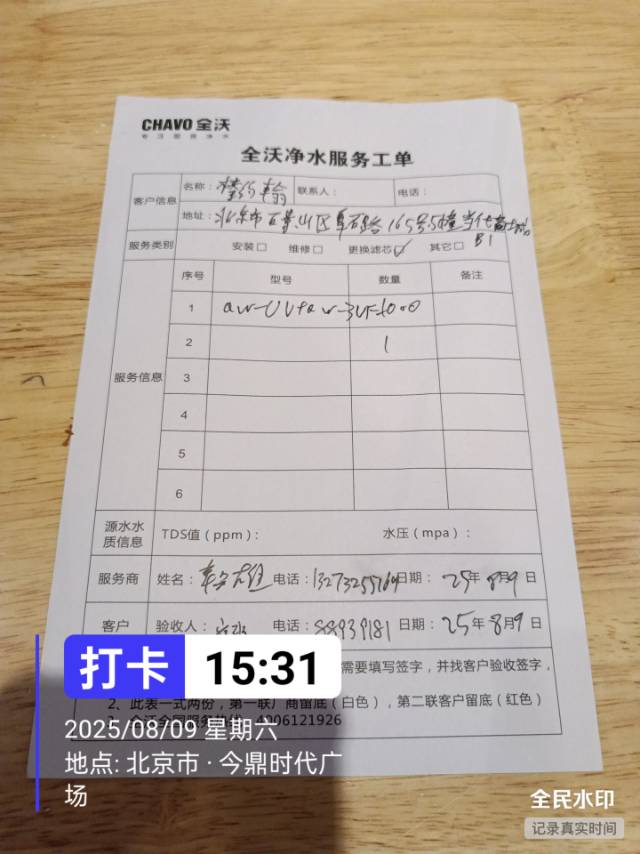 CHAVO 全沃
专注厨房净水
全沃净水服务工单
客户信息
名称： 联系人： 电话：
地址：北京市石景山区阜石路165号5幢当代商城
B1
服务类别 安装□ 维修□ 更换滤芯☑ 其它□
服务信息
序号 型号 数量 备注
1
2 1
3
4
5
6
源水水质信息 TDS值（ppm）： 水压（mpa）：
服务商 姓名： 电话： 日期：25年8月9日
客户 验收人： 电话：88939181 日期：25年8月9日
需要填写签字，并找客户验收签字，
2、此表一式两份，第一联厂商留底（白色），第二联客户留底（红色）
4006121926
打卡 15:31
2025/08/09 星期六
地点: 北京市·今鼎时代广
场
全民水印
记录真实时间